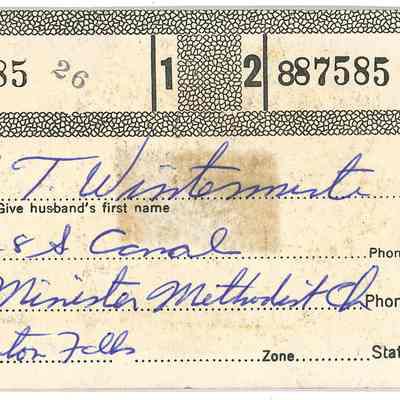 85 26 1 2 887585
T. Wintermute
Give husband's first name
8 S Canal Phon
Minister Methodist Ch Phon
ton Falls Zone Stat